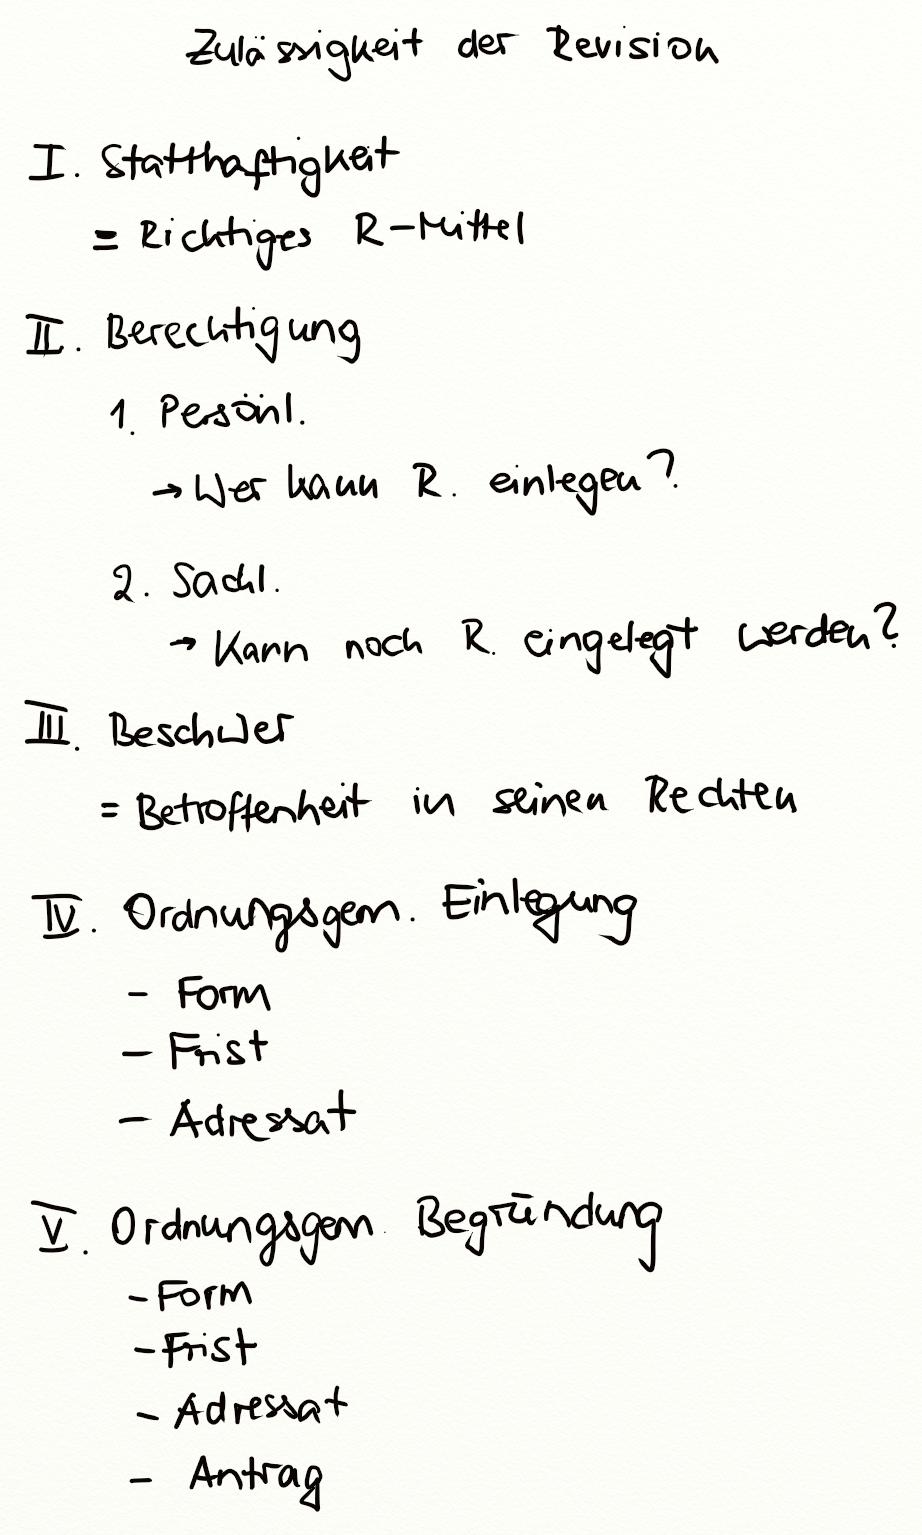 Zulässigkeit der Revision
I. Statthaftigkeit
= Richtiges R-Mittel
II. Berechtigung
1. Persönl.
→ Wer kann R. einlegen?
2. Sachl.
→ Kann noch R. eingelegt werden?
III. Beschwer
= Betroffenheit in seinen Rechten
IV. Ordnungsgem. Einlegung
- Form
- Frist
- Adressat
V. Ordnungsgem. Begründung
- Form
- Frist
- Adressat
- Antrag